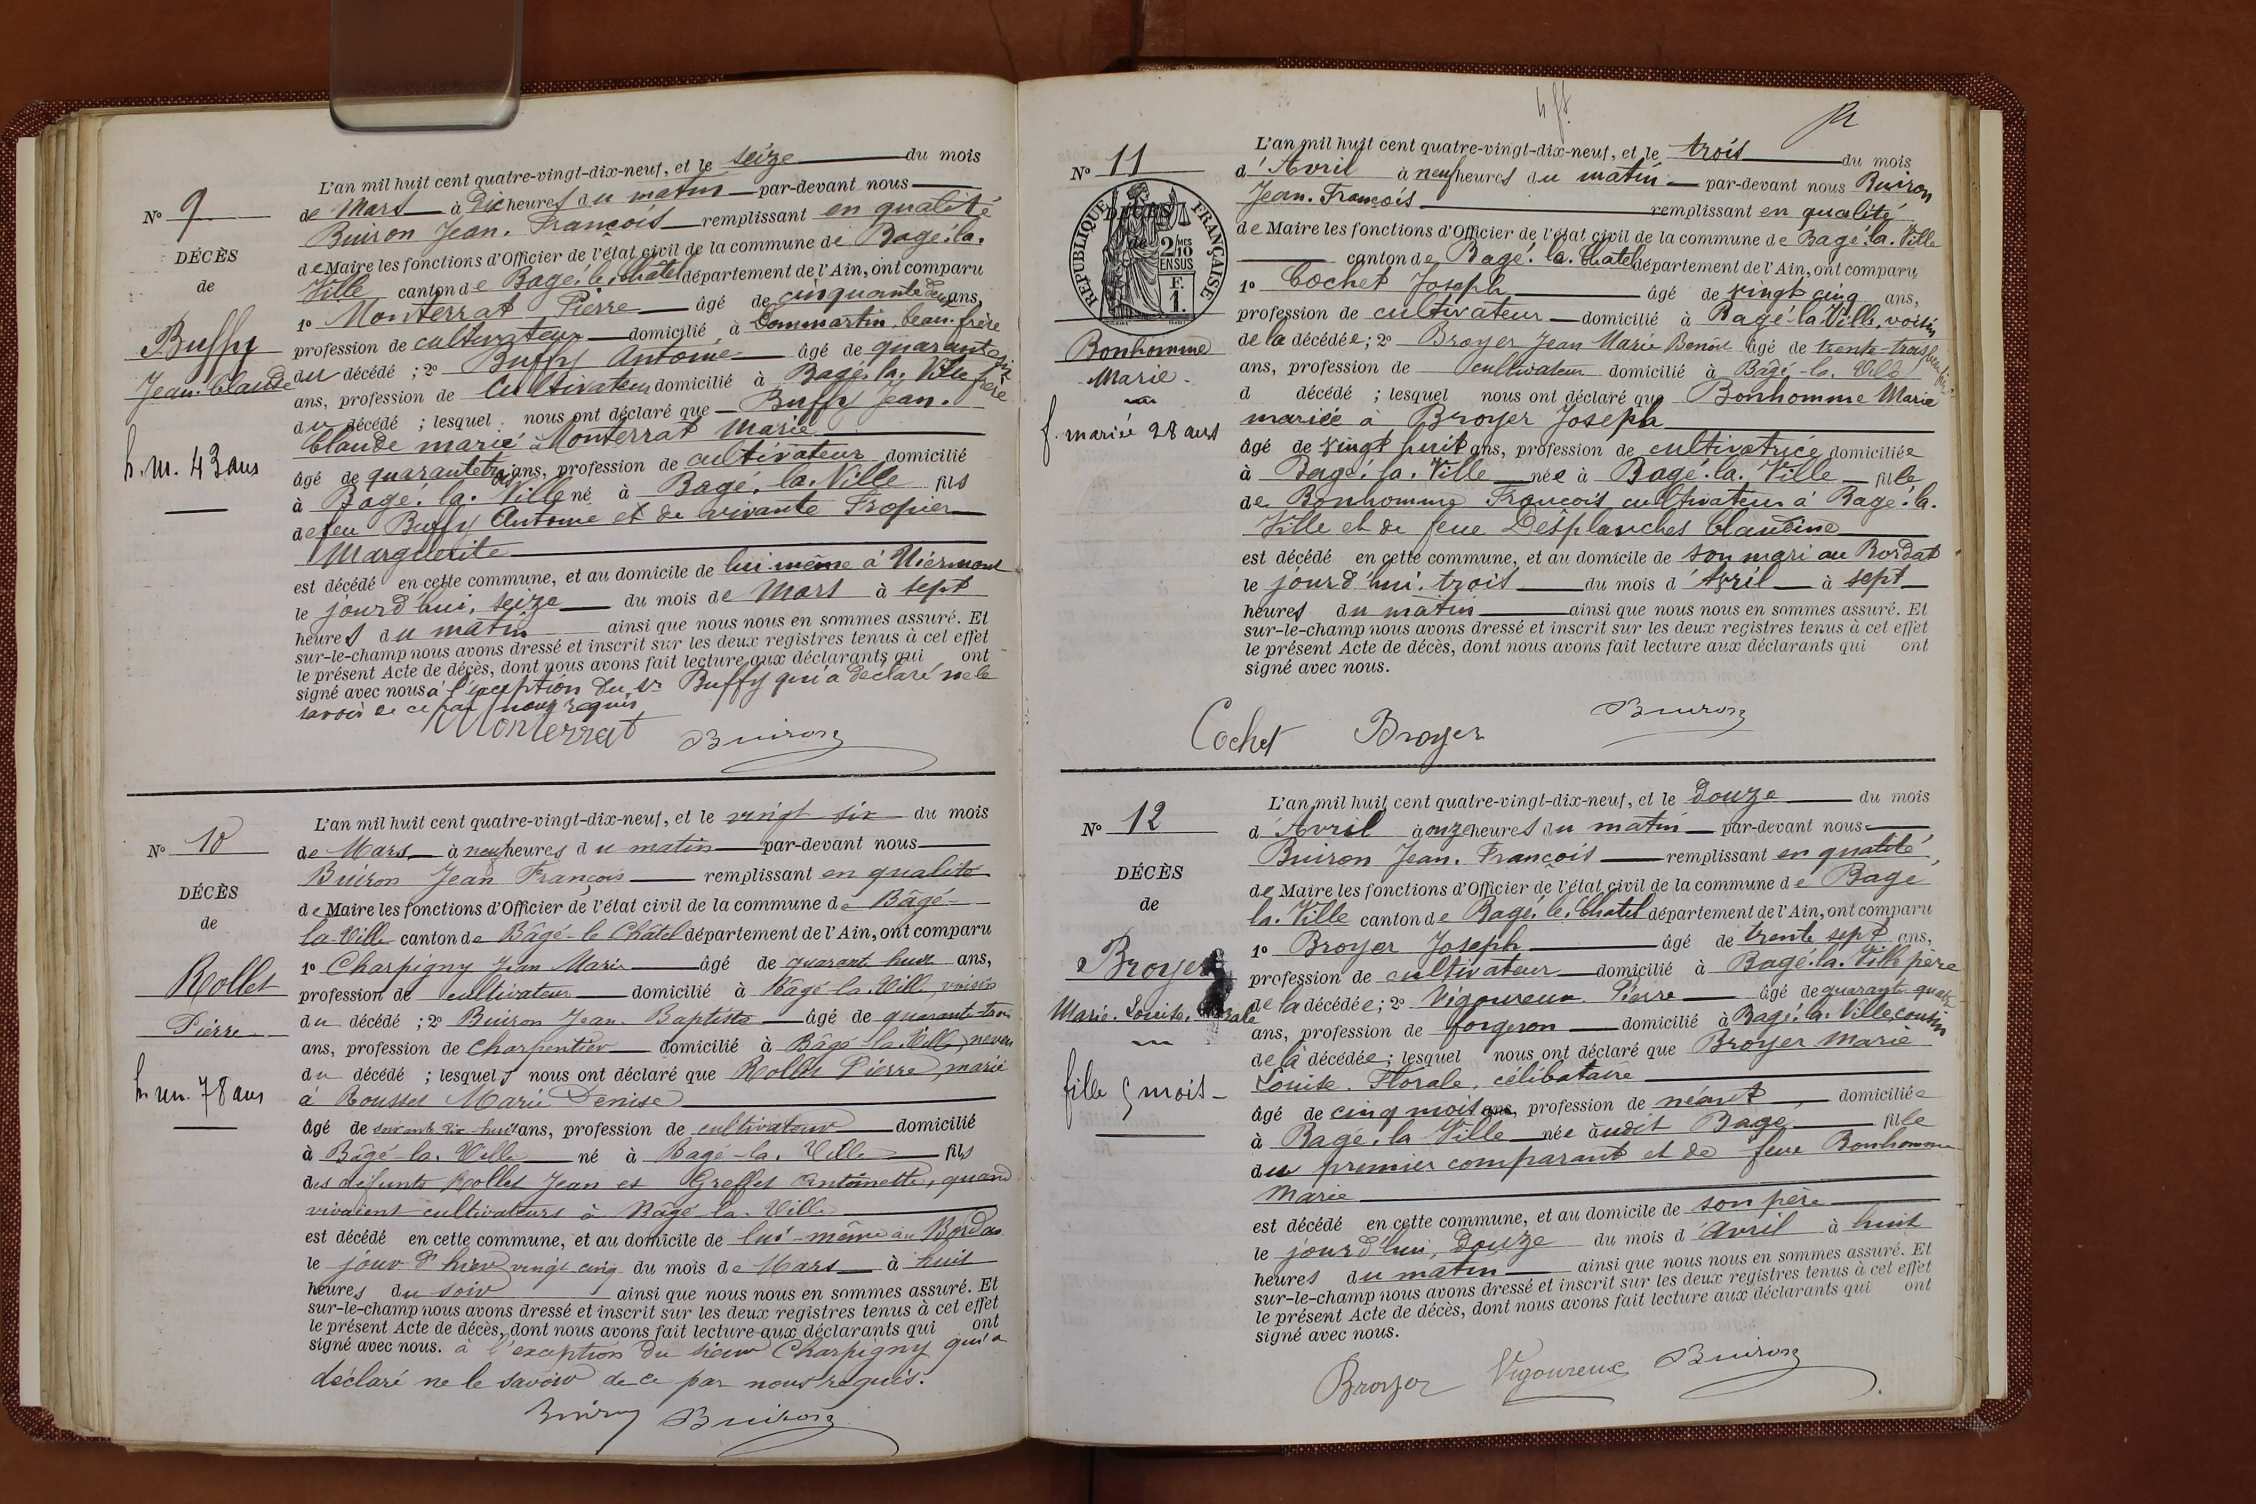 L'an mil huit cent quatre-vingt-dix-neuf, et le seize du mois
de Mars à Dix heures du matin par-devant nous
Buiron Jean. François remplissant en qualité
de Maire les fonctions d'Officier de l'état civil de la commune de Bagé. la.
Ville canton de Bagé. le. Châtel département de l'Ain, ont comparu
1º Monterrat Pierre âgé de cinquante deux ans,
profession de cultivateur domicilié à Dommartin, beau-frère
du décédé ; 2º Buffy Antoine âgé de quarante six
ans, profession de Cultivateur domicilié à Bagé. la. Ville frère
du décédé ; lesquel nous ont déclaré que Buffy Jean.
Claude marié à Monterrat Marie
âgé de quarante trois ans, profession de cultivateur domicilié
à Bagé. la. Ville né à Bagé. la. Ville fils
de feu Buffy Antoine et de vivante Fropier
Marguerite
est décédé en cette commune, et au domicile de lui-même à
le jourd'hui, seize du mois de Mars à sept
heures du matin ainsi que nous nous en sommes assuré. Et
sur-le-champ nous avons dressé et inscrit sur les deux registres tenus à cet effet
le présent Acte de décès, dont nous avons fait lecture aux déclarants qui ont
signé avec nous à l'exception du Sr Buffy qui a déclaré ne le
savoir de ce par nous requis
Monterrat Buiron
Nº 9
DÉCÈS
de
Buffy
Jean. Claude
h. m. 43 ans
L'an mil huit cent quatre-vingt-dix-neuf, et le vingt six du mois
de Mars à neuf heures du matin par-devant nous
Buiron Jean François remplissant en qualité
de Maire les fonctions d'Officier de l'état civil de la commune de Bâgé-
la-Ville canton de Bâgé-le Châtel département de l'Ain, ont comparu
1º Charpigny Jean Marie âgé de quarant huit ans,
profession de cultivateur domicilié à Bâgé-la. Ville, voisin
du décédé ; 2º Buiron Jean Baptiste âgé de quarante-trois
ans, profession de Charpentier domicilié à Bâgé la. Ville, neveu
du décédé ; lesquels nous ont déclaré que Rollet Pierre, marié
à Rousset Marie Denise
âgé de soixante dix-huit ans, profession de cultivateur domicilié
à Bâgé-la. Ville né à Bagé-la. Ville fils
des défunts Rollet Jean et Greffet Antoinette, quand
vivaient cultivateurs à Bâgé-la. Ville
est décédé en cette commune, et au domicile de lui-même au Bordat
le jour d'hier vingt cinq du mois de Mars à huit
heures du soir ainsi que nous nous en sommes assuré. Et
sur-le-champ nous avons dressé et inscrit sur les deux registres tenus à cet effet
le présent Acte de décès, dont nous avons fait lecture aux déclarants qui ont
signé avec nous. à l'exception du sieur Charpigny qui a
déclaré ne le savoir de ce par nous requis.
Buiron Buiron
Nº 10
DÉCÈS
de
Rollet
Pierre
h. m. 78 ans
L'an mil huit cent quatre-vingt-dix-neuf, et le trois du mois
d'Avril à neuf heures du matin par-devant nous Buiron
Jean. François remplissant en qualité
de Maire les fonctions d'Officier de l'état civil de la commune de Bagé. la. Ville
canton de Bagé. le. Châtel département de l'Ain, ont comparu
1º Cochet Joseph âgé de vingt cinq ans,
profession de cultivateur domicilié à Bagé-la. Ville, voisin
de la décédée ; 2º Broyer Jean Marie Benoît âgé de trente-trois
ans, profession de cultivateur domicilié à Bâgé-la. Ville
d décédé ; lesquel nous ont déclaré que Bonhomme Marie
mariée à Broyer Joseph
âgé de vingt huit ans, profession de cultivatrice domiciliée
à Bagé. la. Ville née à Bagé. la. Ville fille
de Bonhomme François cultivateur à Bagé. la.
Ville et de feue Desplanches Claudine
est décédé en cette commune, et au domicile de son mari au Bordat
le jourd'hui. trois du mois d'Avril à sept
heures du matin ainsi que nous nous en sommes assuré. Et
sur-le-champ nous avons dressé et inscrit sur les deux registres tenus à cet effet
le présent Acte de décès, dont nous avons fait lecture aux déclarants qui ont
signé avec nous.
Cochet Broyer Buiron
Nº 11
DÉCÈS
de
RÉPUBLIQUE FRANÇAISE
2/10
EN SUS
F.
1.
Bonhomme
Marie
f. mariée 28 ans
L'an mil huit cent quatre-vingt-dix-neuf, et le Douze du mois
d'Avril à onze heures du matin par-devant nous
Buiron Jean. François remplissant en qualité
de Maire les fonctions d'Officier de l'état civil de la commune de Bagé
la. Ville canton de Bagé. le. Châtel département de l'Ain, ont comparu
1º Broyer Joseph âgé de trente sept ans,
profession de cultivateur domicilié à Bagé. la. Ville père
de la décédée ; 2º Vigoureux Pierre âgé de quarante quatre
ans, profession de forgeron domicilié à Bagé. la. Ville, cousin
de la décédée ; lesquel nous ont déclaré que Broyer Marie
Louise. Florale, célibataire
âgé de cinq mois ans, profession de néant domiciliée
à Bagé. la Ville née audit Bagé fille
du premier comparant et de feue Bonhomme
Marie
est décédé en cette commune, et au domicile de son père
le jourd'hui, Douze du mois d'Avril à huit
heures du matin ainsi que nous nous en sommes assuré. Et
sur-le-champ nous avons dressé et inscrit sur les deux registres tenus à cet effet
le présent Acte de décès, dont nous avons fait lecture aux déclarants qui ont
signé avec nous.
Broyer Vigoureux Buiron
Nº 12
DÉCÈS
de
Broyer
Marie. Louise.
fille 5 mois